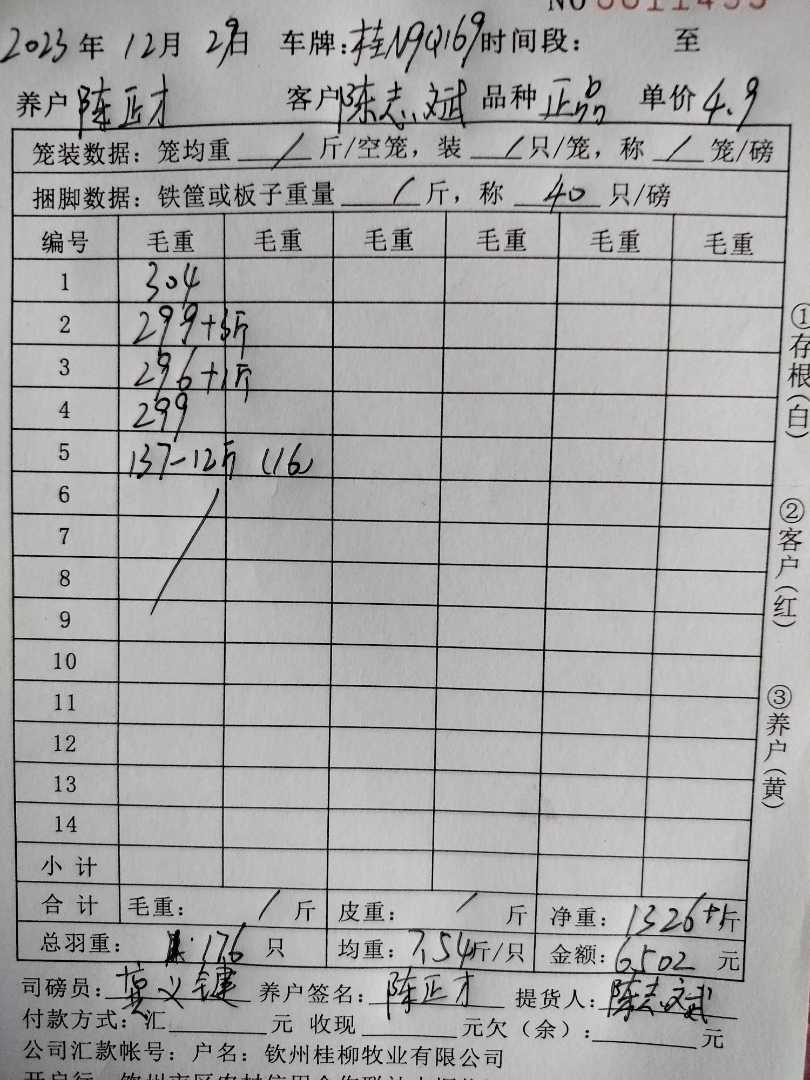 NO 0011455
2023 年 12月 29日 车牌:桂N9Q169 时间段: 至
养户 陈正才 客户 陈志斌 品种 正品 单价 4.9
笼装数据: 笼均重 / 斤/空笼, 装 / 只/笼, 称 / 笼/磅
捆脚数据: 铁筐或板子重量 / 斤, 称 40 只/磅
编号 毛重 毛重 毛重 毛重 毛重 毛重
1 304
2 299+3斤
3 296+1斤
4 299
5 137-12斤 (16)
6
7
8
9
10
11
12
13
14
小 计
合 计 毛重: / 斤 皮重: / 斤 净重: 1326+1斤
总羽重: 176 只 均重: 7.54斤/只 金额: 6502 元
司磅员: 莫义键 养户签名: 陈正才 提货人: 陈志斌
付款方式: 汇 元 收现 元欠(余): 元
公司汇款帐号: 户名: 钦州桂柳牧业有限公司
①存根(白)
②客户(红)
③养户(黄)